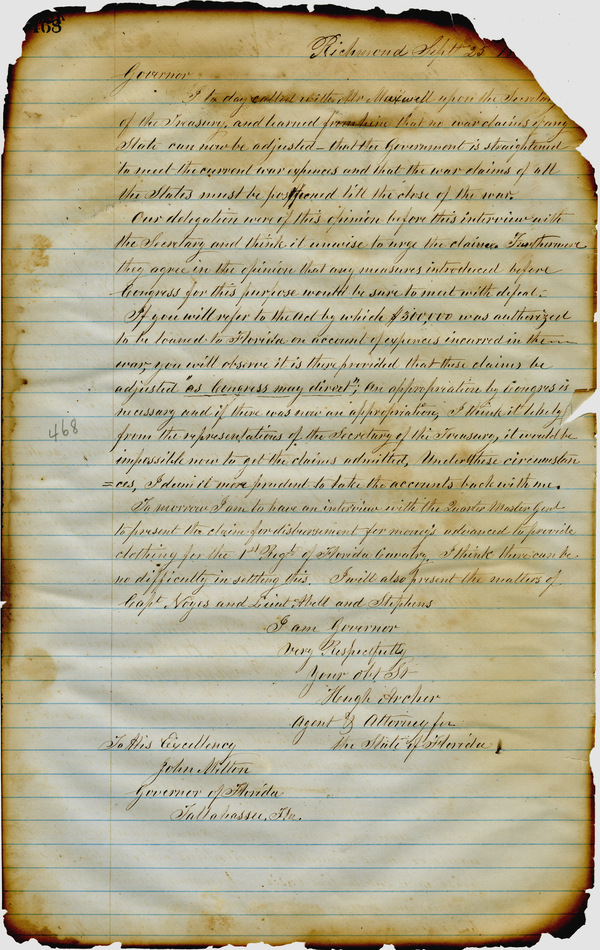 468
Richmond Sept 25
Governor
I to day called with Mr Maxwell upon the Secretary
of the Treasury, and learned from him that no war claims of any
State can now be adjusted – that the Government is straightened
to meet the current war expences and that the war claims of all
the States must be postponed till the close of the war.
Our delegation were of this opinion before this interview with
the Secretary and think it unwise to urge the claims. Furthermore
they agree in the opinion that any measures introduced before
Congress for this purpose would be sure to meet with defeat.
If you will refer to the Act by which $500,000 was authorized
to be loaned to Florida on account of expences incurred in the
war, you will observe it is there provided that these claims be
adjusted "as Congress may direct"; An appropriation by Congress is
necessary and if there was now an appropriation, I think it likely
from the representations of the Secretary of the Treasury, it would be
impossible now to get the claims admitted, Under these circumstan
=ces, I deem it more prudent to take the accounts back with me.
To morrow I am to have an interview with the Quarter Master Genl
to present the claim for disbursement for moneys advanced to provide
clothing for the 1st Regt of Florida Cavalry. I think there can be
no difficulty in settling this. I will also present the matters of
Capt Noyes and Lieut Abell and Stephens
I am Governor
Very Respectfully
Your obt St
Hugh Archer
Agent & Attorney for
the State of Florida
To His Excellency
John Milton
Governor of Florida
Tallahassee, Fla.
468